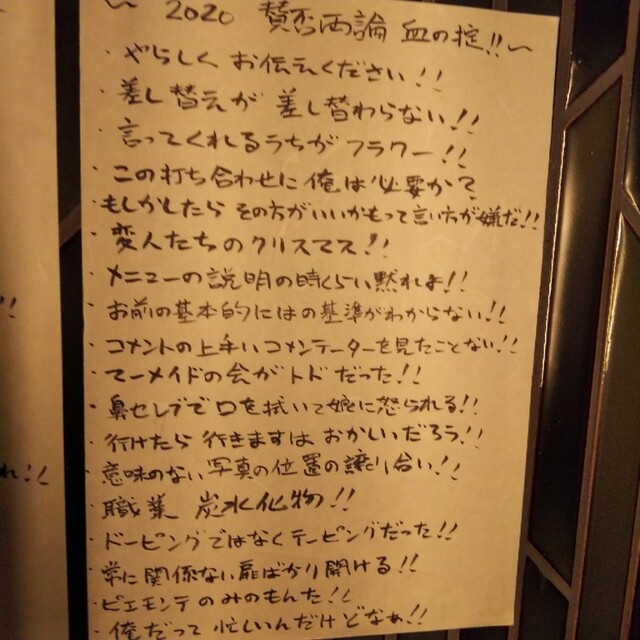 〜 2020 賛否両論 血の掟!!〜
・やらしく お伝えください!!
・差し替えが 差し替わらない!!
・言ってくれるうちが フラワー!!
・この打ち合わせに 俺は必要か?
・もしかしたら その方がいいかもって言い方が嫌だ!!
・変人たちのクリスマス!!
・メニューの説明の時くらい黙れよ!!
・お前の基本的にはの基準がわからない!!
・コメントの上手いコメンテーターを見たことない!!
・マーメイドの会がトドだった!!
・鼻セレブで口を拭いて娘に怒られる!!
・行けたら 行きますは おかしいだろう!!
・意味のない写真の位置の譲り合い!!
・職業 炭水化物!!
・ドーピングではなくテーピングだった!!
・常に関係ない扉ばかり開ける!!
・ピエモンテのみのもんた!!
・俺だって 忙しいんだけどなぁ!!
!!
れ!!